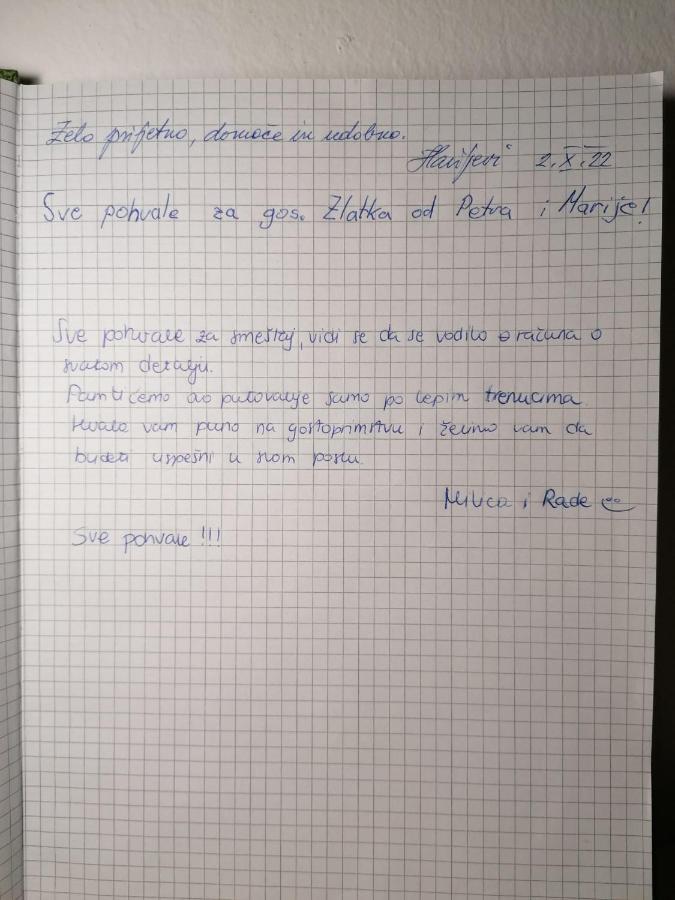 Zelo prijetno, domače in udobno.
2.X.22
Sve pohvale za gos. Zlatka od Petra i Marije!
Sve pohvale za smeštaj, vidi se da se vodilo računa o
svakom detalju.
Pamtićemo ovo putovanje samo po lepim trenucima.
Hvala vam puno na gostoprimstvu i želimo vam da
budete uspešni u svom poslu.
Milica i Rade
Sve pohvale!!!